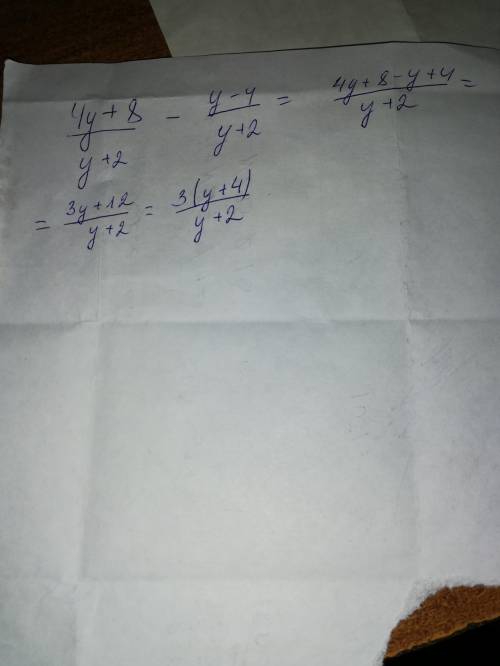 (4y+8)/(y+2) - (y-4)/(y+2) = (4y+8-y+4)/(y+2) =
= (3y+12)/(y+2) = 3(y+4)/(y+2)